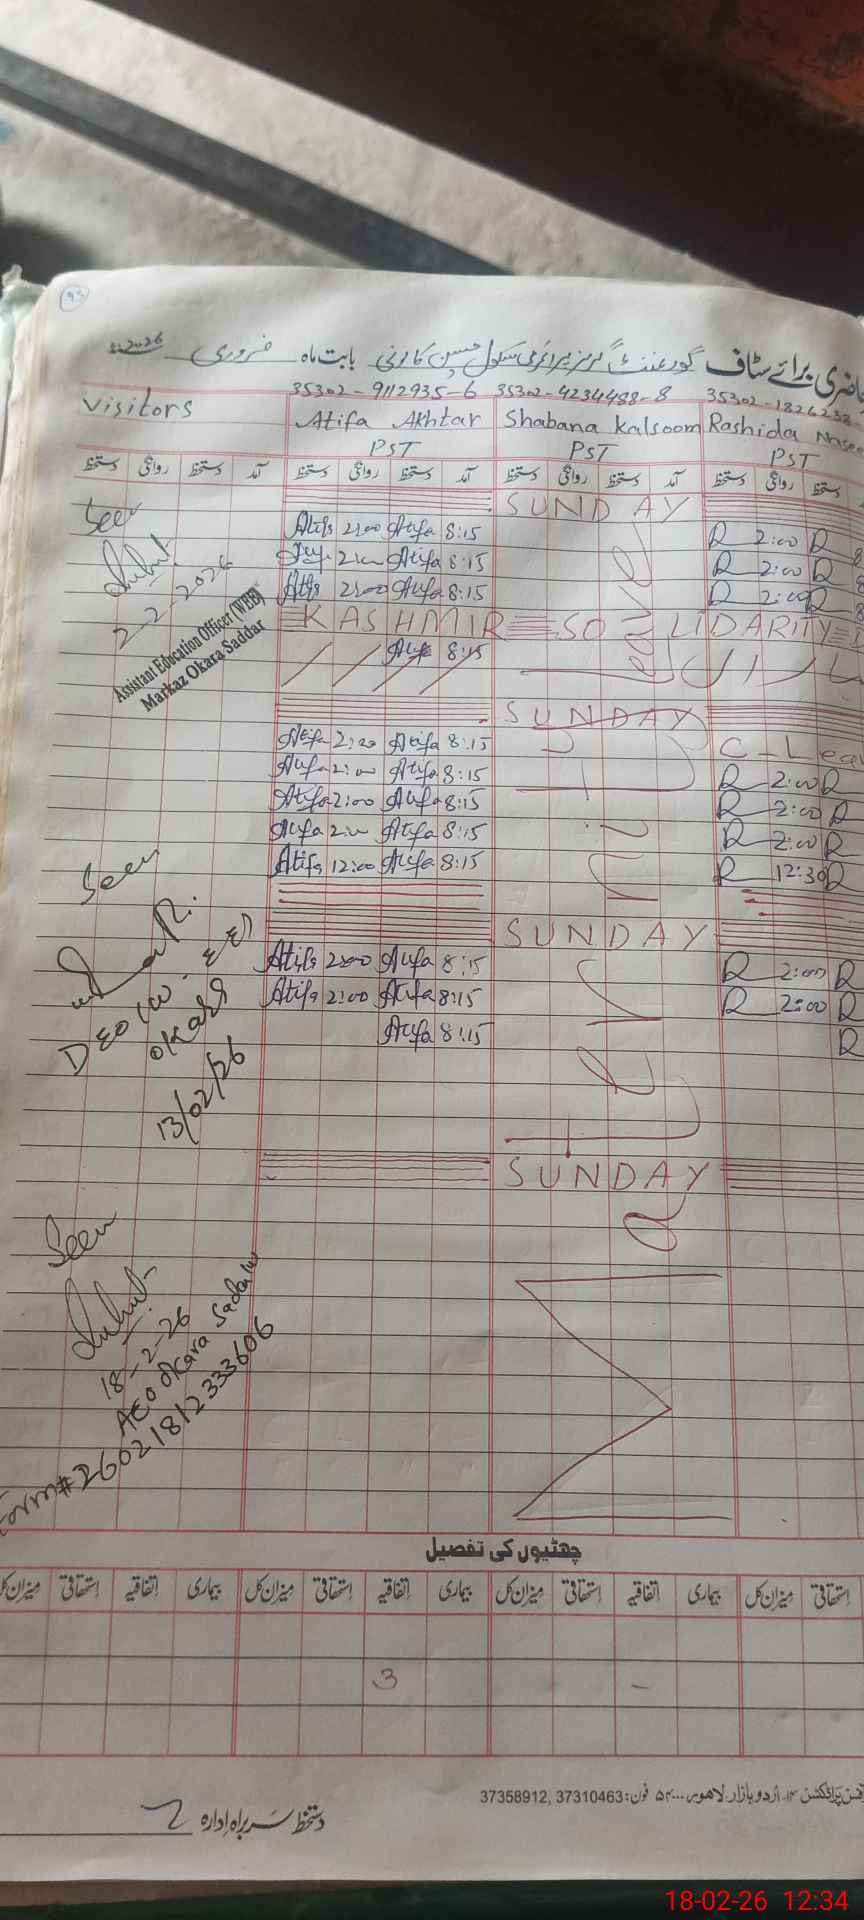 93
حاضری برائے سٹاف گورنمنٹ گرلز پرائمری سکول حسین کالونی بابت ماہ فروری 2026
35302-9112935-6 35302-4234488-8
Visitors Atifa Akhtar Shabana Kalsoom Rashida
PST PST PST
دستخط روانگی دستخط آمد دستخط روانگی دستخط آمد دستخط روانگی دستخط
SUNDAY
Seen
Atifa 2:00 Atifa 8:15 R 2:00 R
2:00 Atifa 8:15 R 2:00 R
Atifa 2:00 Atifa 8:15 R 2:00 R
2-2-2026
Assistant Education Officer (WEE)
Markaz Okara Saddar
KASHMIR SOLIDARITY
Atifa 8:15
SUNDAY
Atifa 2:00 Atifa 8:15 C-Leav
Atifa 2:00 Atifa 8:15 R 2:00 R
Atifa 2:00 Atifa 8:15 R 2:00 R
Atifa 2:00 Atifa 8:15 R 2:00 R
Atifa 12:00 Atifa 8:15 R 12:30 R
Seen
Maternity Leave
SUNDAY
Atifa 2:00 Atifa 8:15 R 2:00 R
Atifa 2:00 Atifa 8:15 R 2:00 R
Atifa 8:15 R
DEO (W-EE)
OKARA
13/02/26
SUNDAY
Seen
18-2-26
AEO Okara Saddar
Form# 26021812333606
چھٹیوں کی تفصیل
میزان کل استحقاقی اتفاقیہ بیماری میزان کل استحقاقی اتفاقیہ بیماری میزان کل استحقاقی اتفاقیہ بیماری میزان کل استحقاقی
3 -
اردو بازار لاہور فون: 37310463, 37358912
دستخط سربراہ ادارہ
18-02-26 12:34